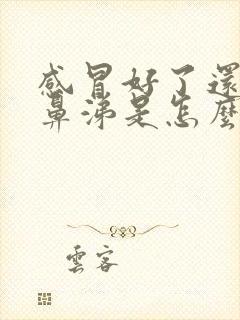 感冒好了還
鼻涕是怎麼
雲客